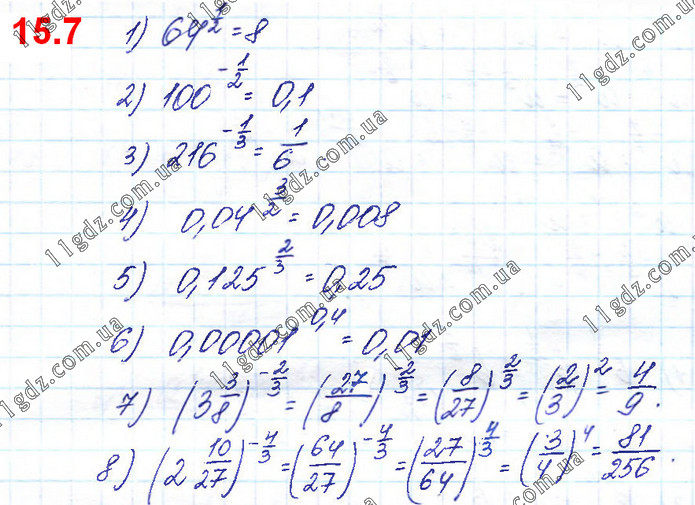 15.7
1) 64^(1/2) = 8
2) 100^(-1/2) = 0,1
3) 216^(-1/3) = 1/6
4) 0,04^(3/2) = 0,008
5) 0,125^(2/3) = 0,25
6) 0,00001^(0,4) = 0,01
7) (3 3/8)^(-2/3) = (27/8)^(-2/3) = (8/27)^(2/3) = (2/3)^2 = 4/9.
8) (2 10/27)^(-4/3) = (64/27)^(-4/3) = (27/64)^(4/3) = (3/4)^4 = 81/256.
11gdz.com.ua
11gdz.com.ua
11gdz.com.ua
11gdz.com.ua
11gdz.com.ua
11gdz.com.ua
11gdz.com.ua